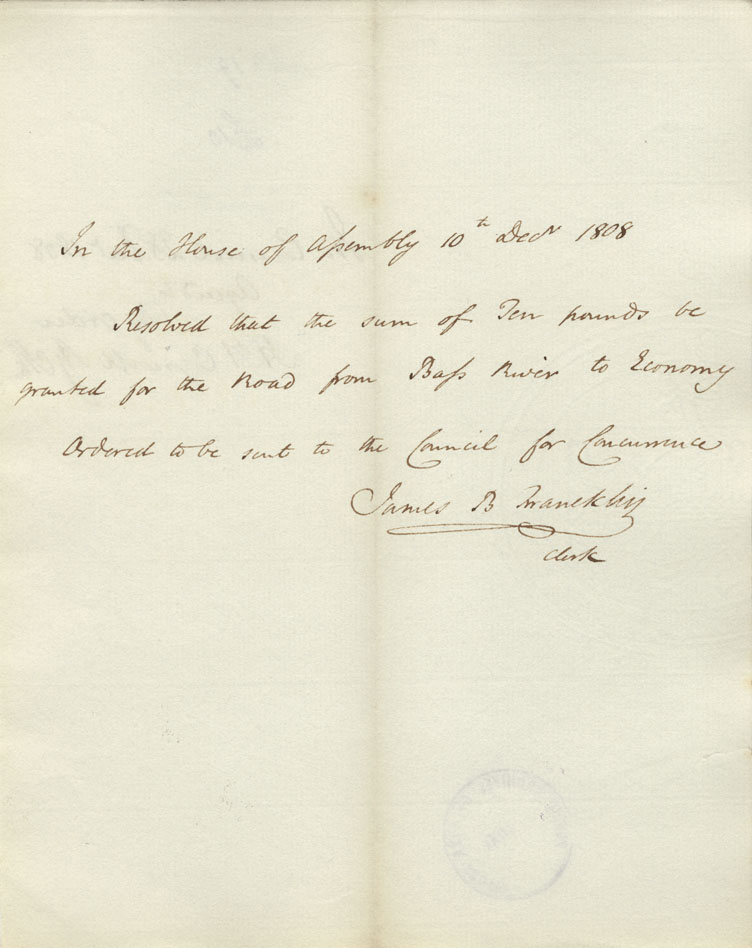 In the House of Assembly 10th Decr 1808
Resolved that the sum of Ten pounds be
granted for the Road from Bass River to Economy
Ordered to be sent to the Council for Concurrence
James B Francklin
Clerk